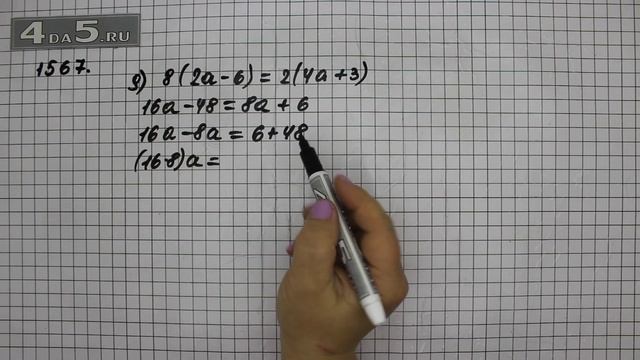 4DA5.RU
1567.
д) 8(2a-6)=2(4a+3)
16a-48=8a+6
16a-8a=6+48
(16-8)a=